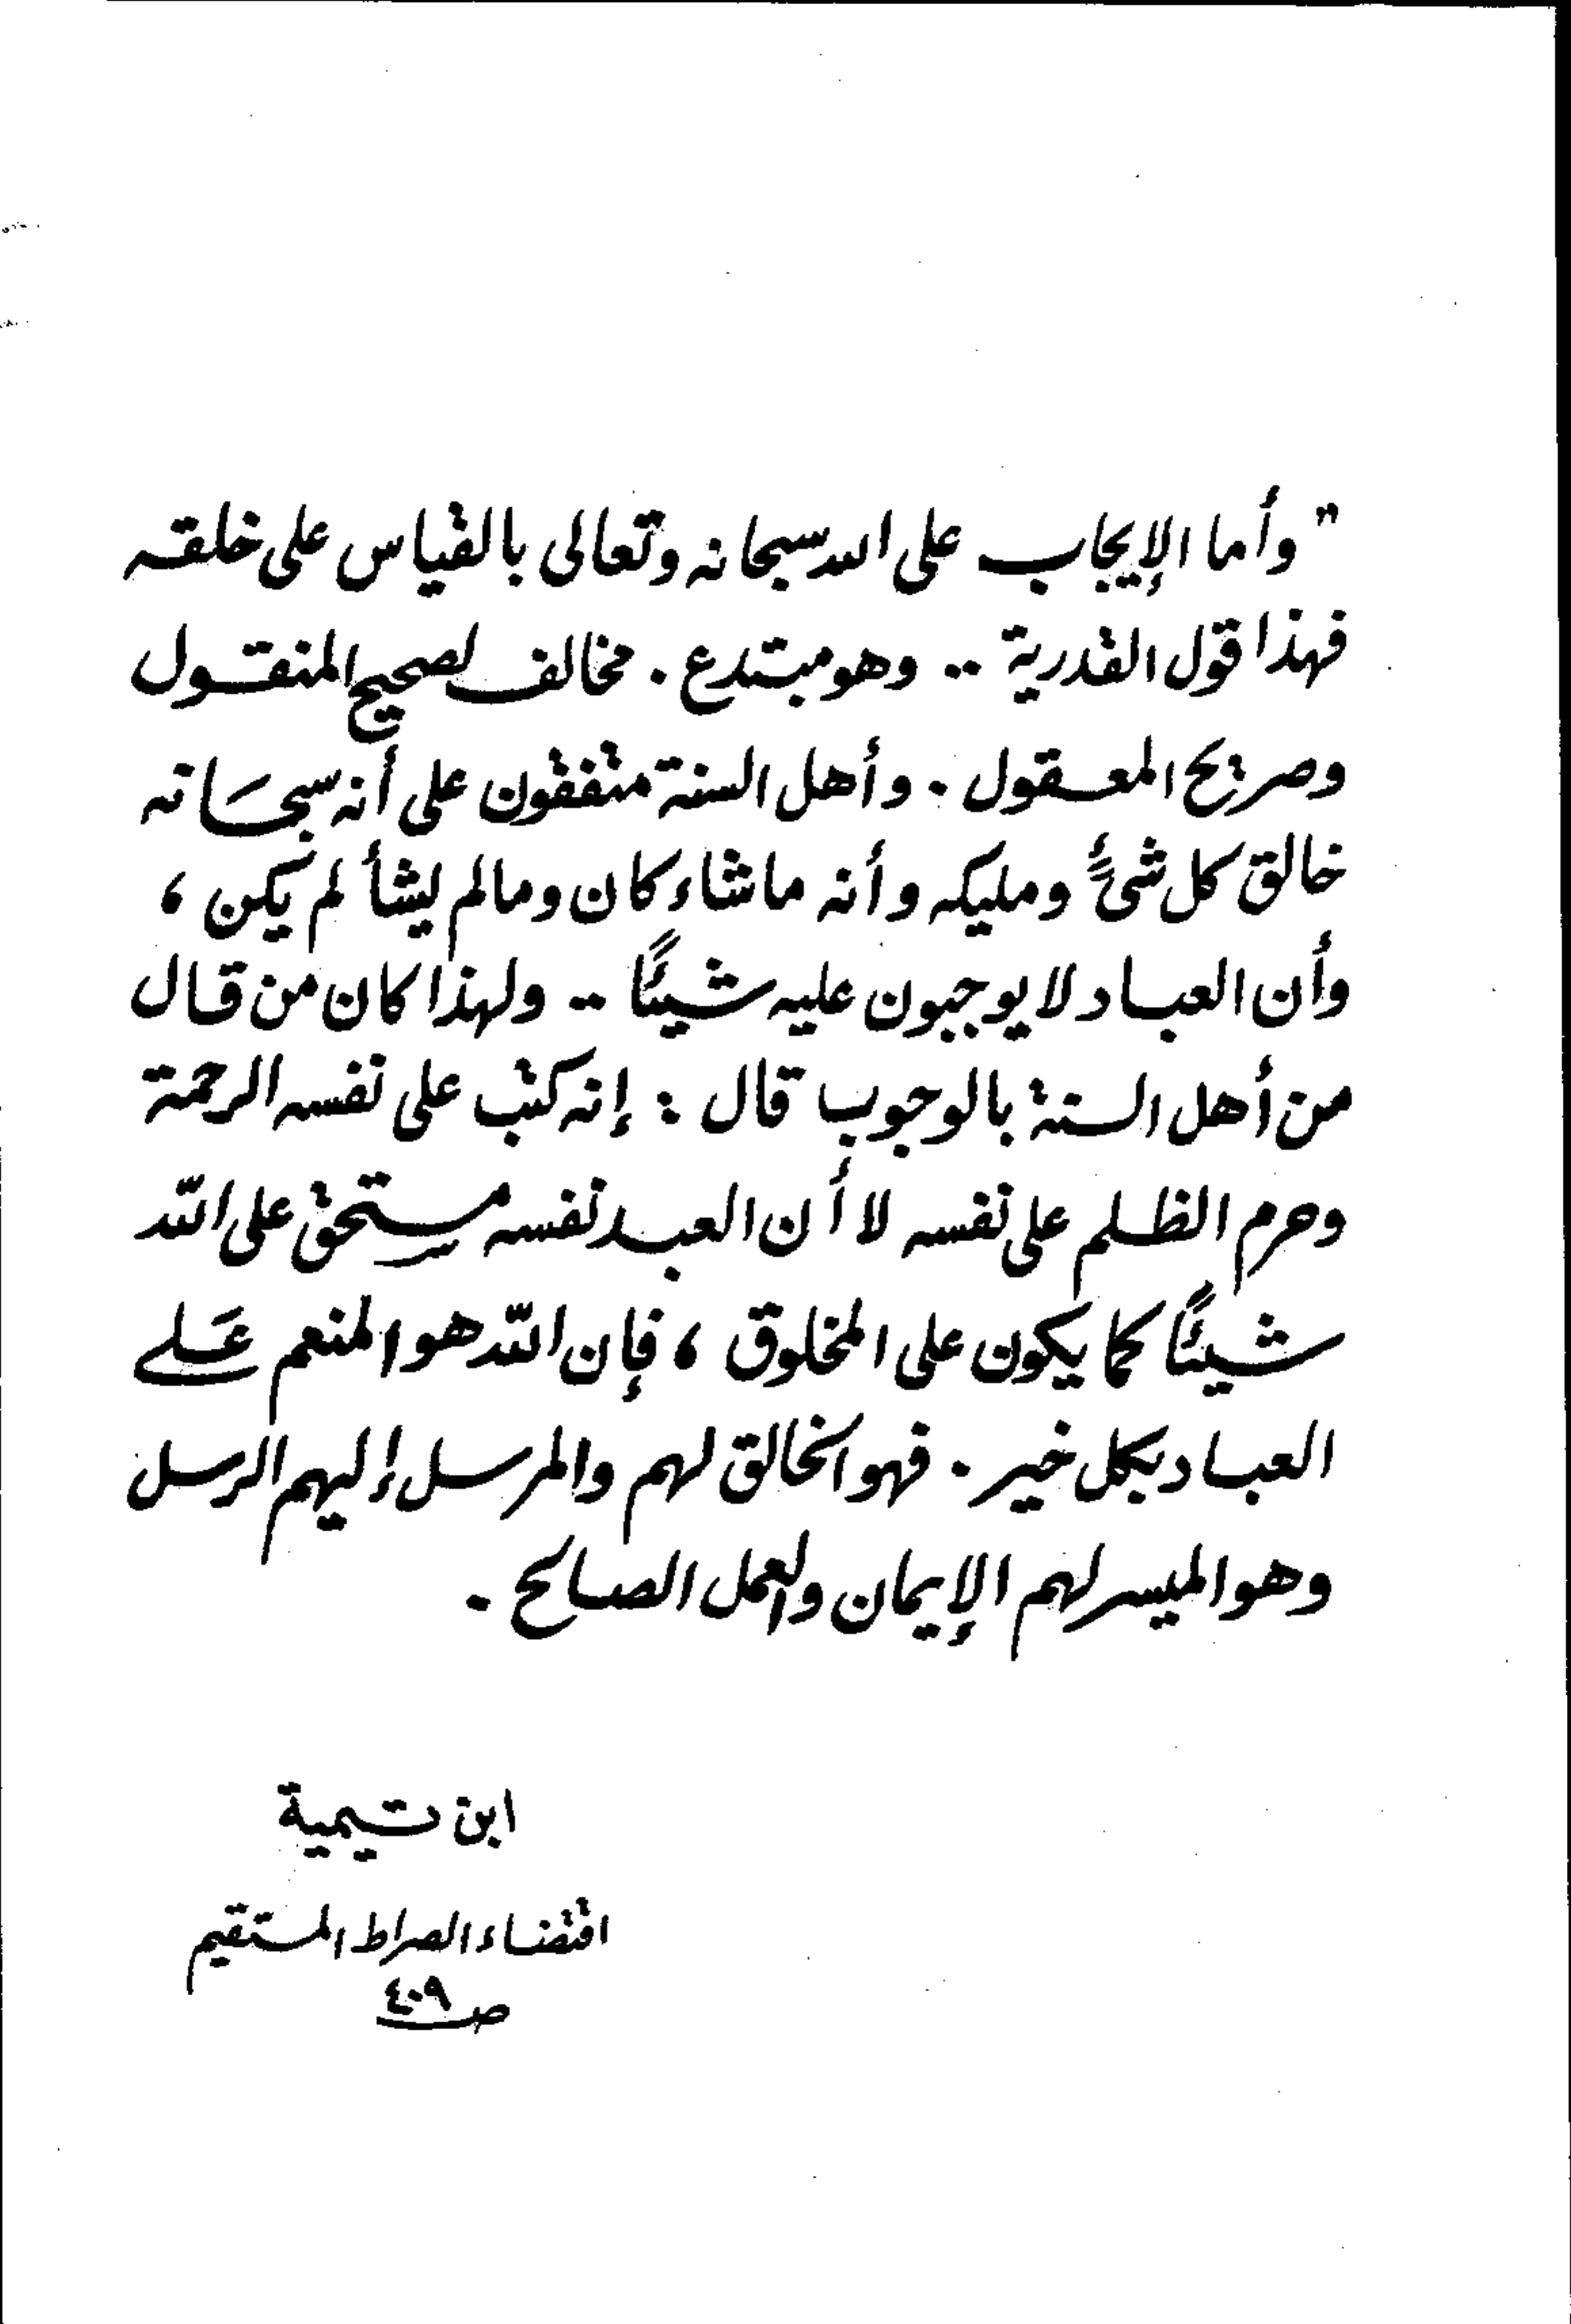 "وأما الإيجاب على الله سبحانه وتعالى بالقياس على خلقه
فهذا قول القدرية .. وهو مبتدع . مخالف لصحيح المنقول
وصريح المعقول . وأهل السنة متفقون على أنه سبحَانه
خالق كل شئً ومليكه وأنه ما شاء كان وما لم يشأ لم يكن ،
وأن العباد لا يوجبون عليه شيئًا .. ولهذا كان من قال
من أهل السنة بالوجوب قال : إنه كتب على نفسه الرحمة
وحرم الظلم على نفسه لا أن العبد نفسه مستحق على اللّه
شيئًا كما يكون على المخلوق ، فإن اللّه هو المنعم عَلى
العباد بكل خير . فهو الخالق لهم والمرسل إليهم الرسل
وهو الميسر لهم الإيمان والعمل الصالح .
ابن تيمية
اقتضاء الصراط المستقيم
ص ٤٠٩